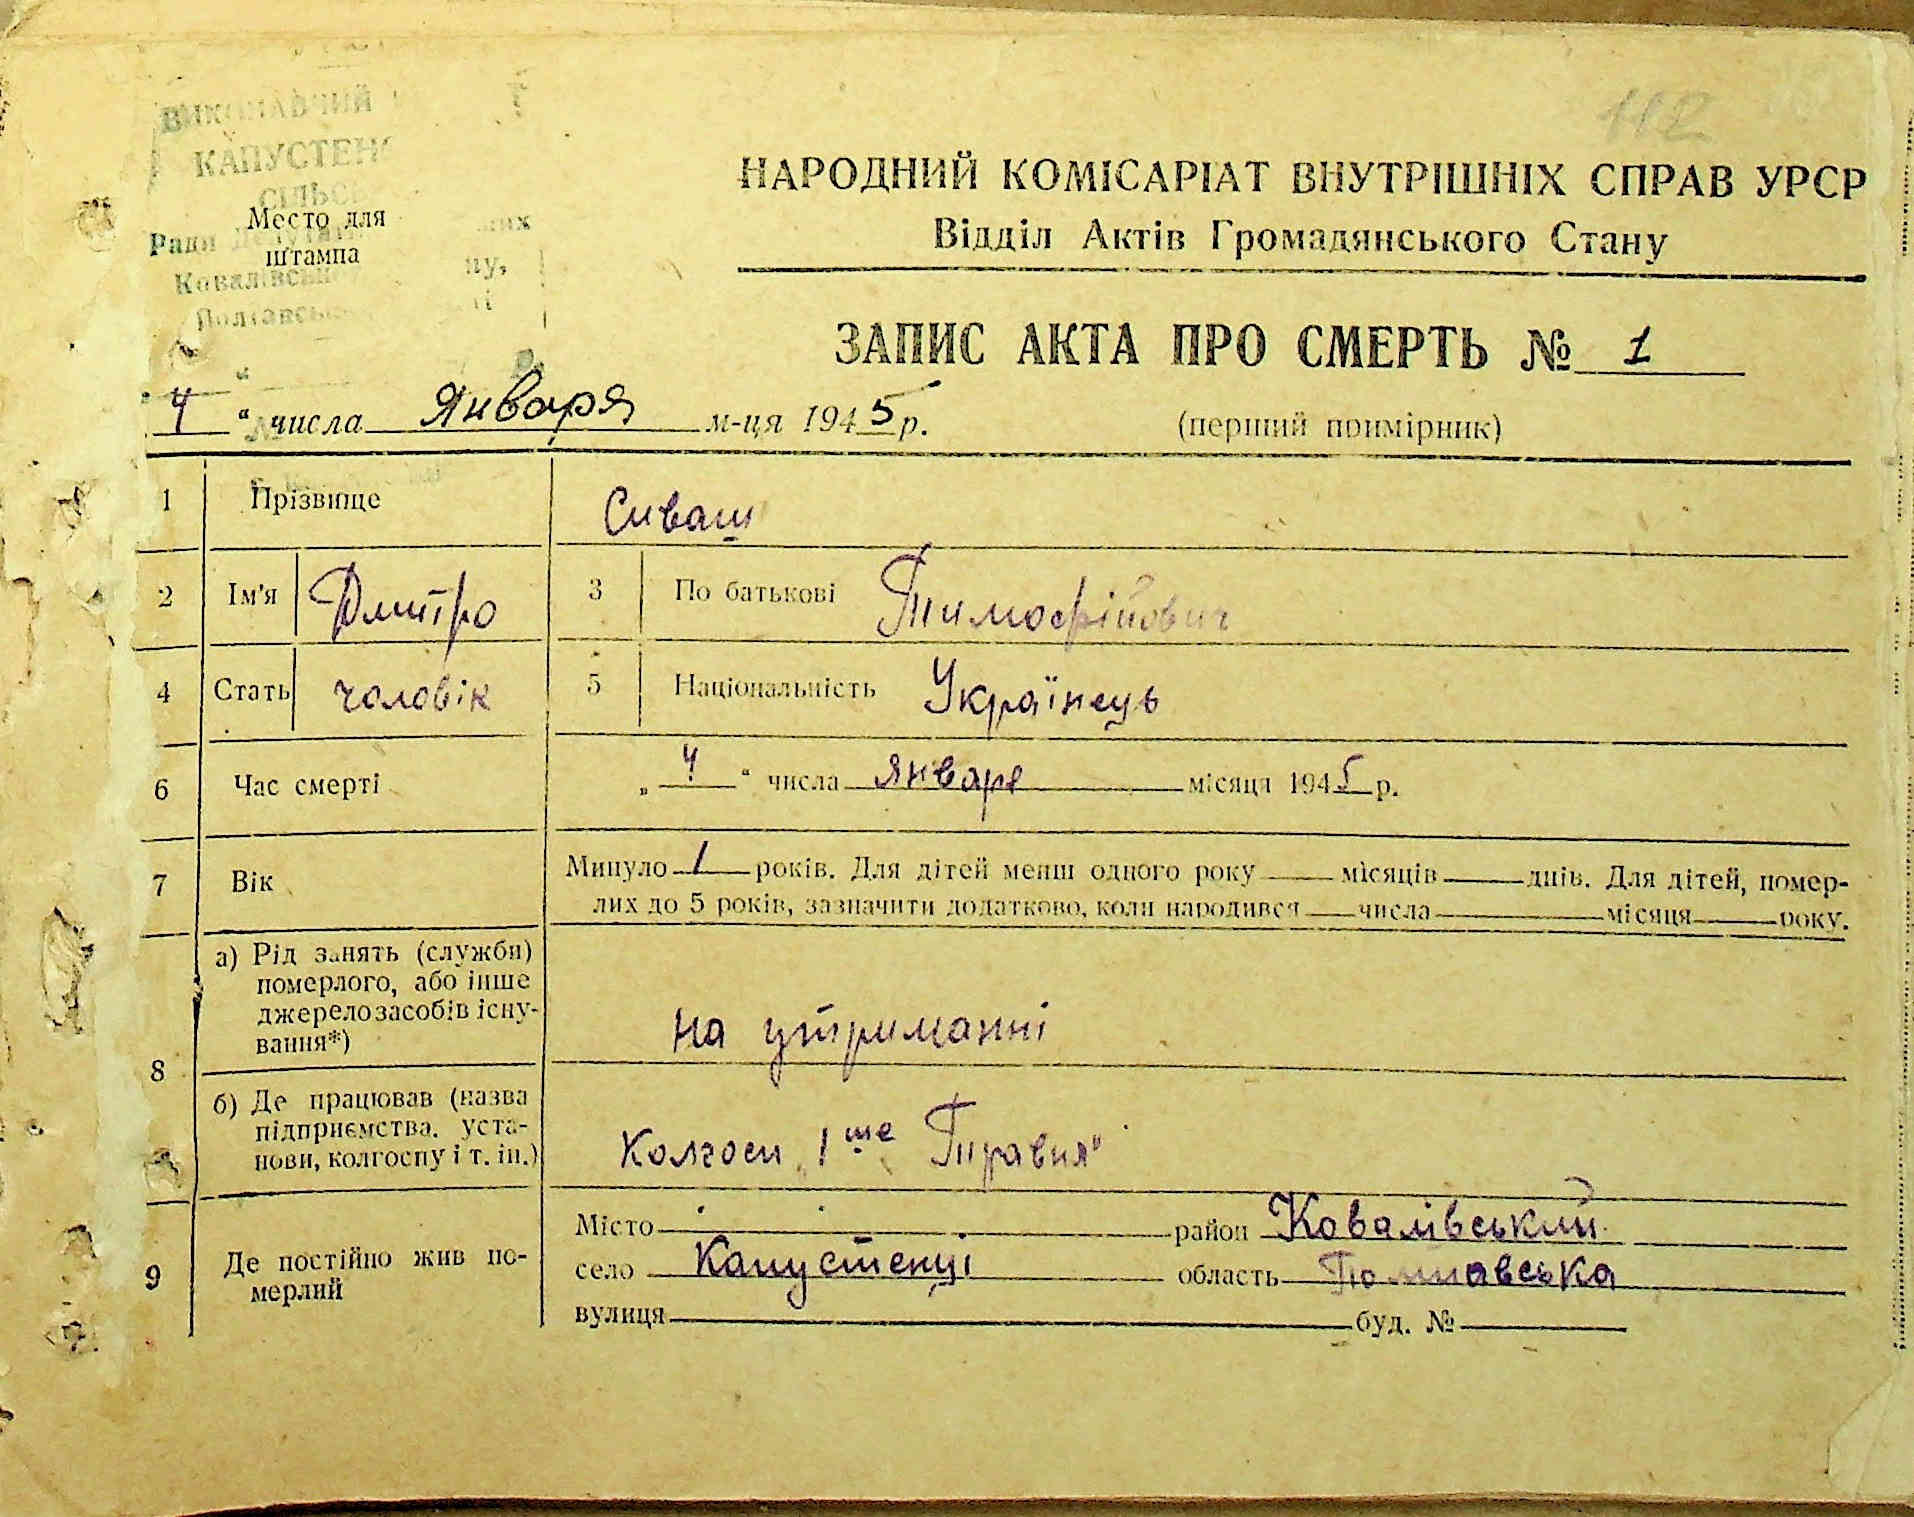 112
ВИКОНАВЧИЙ
КАПУСТЕН
СІЛЬС
Место для
штампа
Ради Депутат них
Ковалівськ ну,
Полтавськ ті
НАРОДНИЙ КОМІСАРІАТ ВНУТРІШНІХ СПРАВ УРСР
Відділ Актів Громадянського Стану
ЗАПИС АКТА ПРО СМЕРТЬ № 1
"4" числа Января м-ця 1945 р.
(перший примірник)
1 Прізвище Сиваш
2 Ім'я Дмитро 3 По батькові Тимофійович
4 Стать чоловік 5 Національність Українець
6 Час смерті „4“ числа января місяця 1945 р.
7 Вік Минуло 1 років. Для дітей менш одного року — місяців — днів. Для дітей, помер-
лих до 5 років, зазначити додатково, коли народився — числа — місяця — року.
8 а) Рід занять (служби)
померлого, або інше
джерело засобів існу-
вання*)
на утриманні
б) Де працював (назва
підприємства, уста-
нови, колгоспу і т. ін.)
Колгосп „1ше Травня"
9 Де постійно жив по-
мерлий
Місто район Ковалівський
село Капустенці область Полтавська
вулиця буд. №